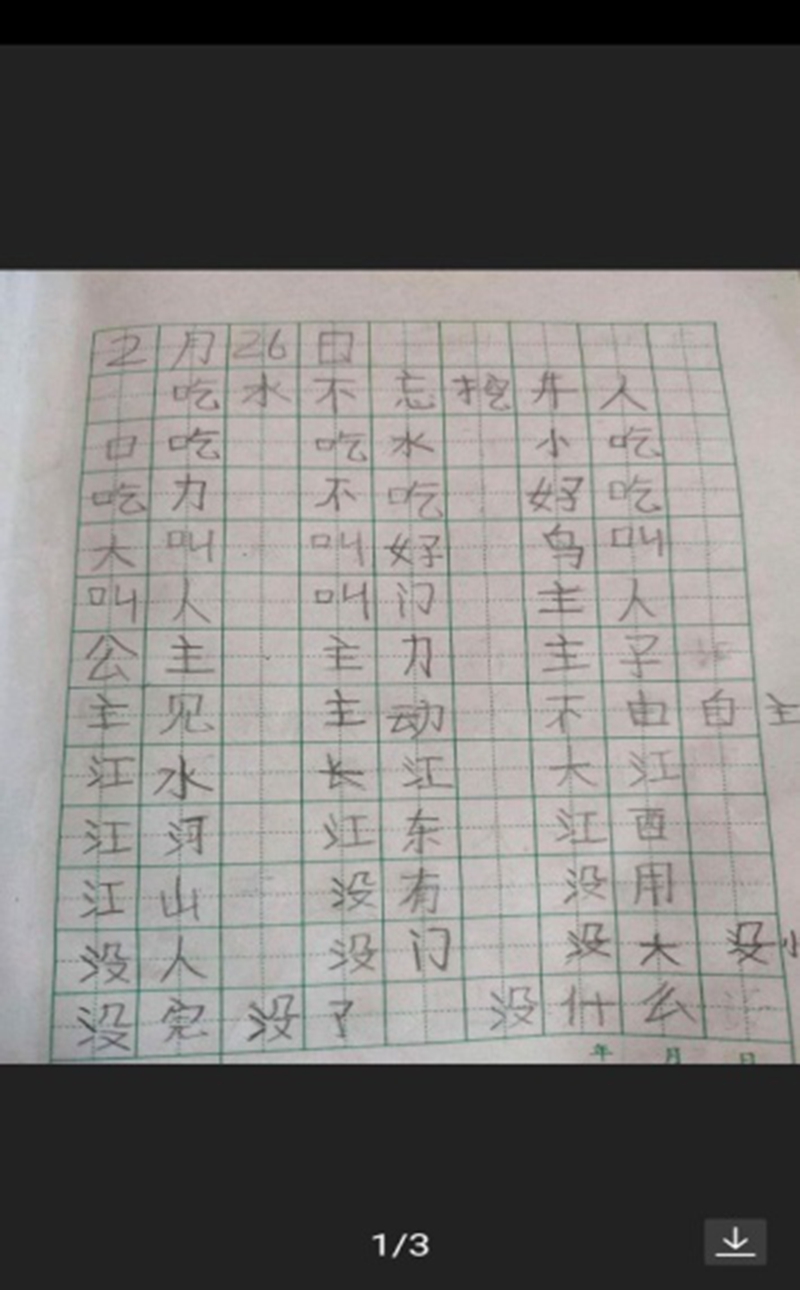 2月26日
吃水不忘挖井人
口吃 吃水 小吃
吃力 不吃 好吃
大叫 叫好 鸟叫
叫人 叫门 主人
公主 主力 主子
主见 主动 不由自主
江水 长江 大江
江河 江东 江西
江山 没有 没用
没人 没门 没大没小
没完没了 没什么
年 月 日
1/3